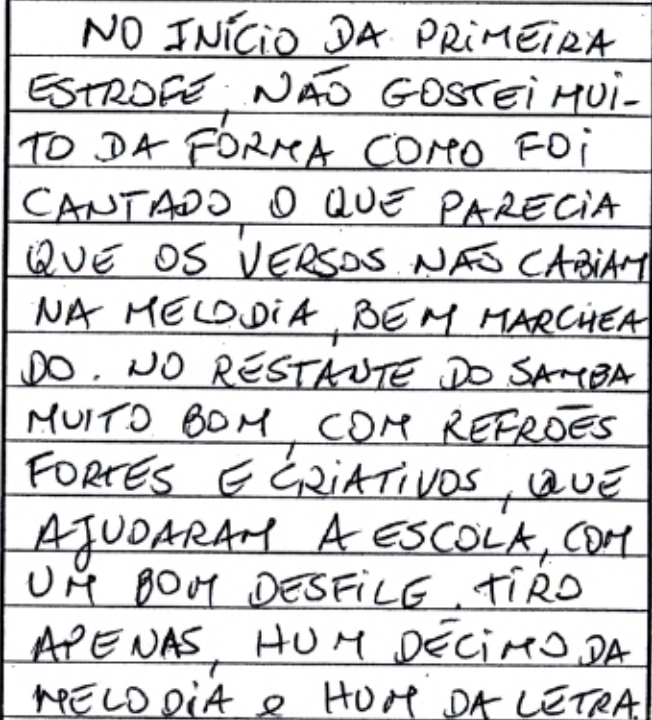 NO INÍCIO DA PRIMEIRA
ESTROFE, NÃO GOSTEI MUI-
TO DA FORMA COMO FOI
CANTADO O QUE PARECIA
QUE OS VERSOS NÃO CABIAM
NA MELODIA, BEM MARCHEA
DO. NO RESTANTE DO SAMBA
MUITO BOM, COM REFRÕES
FORTES E CRIATIVOS, QUE
AJUDARAM A ESCOLA, COM
UM BOM DESFILE. TIRO
APENAS, HUM DÉCIMO DA
MELODIA e HUM DA LETRA.